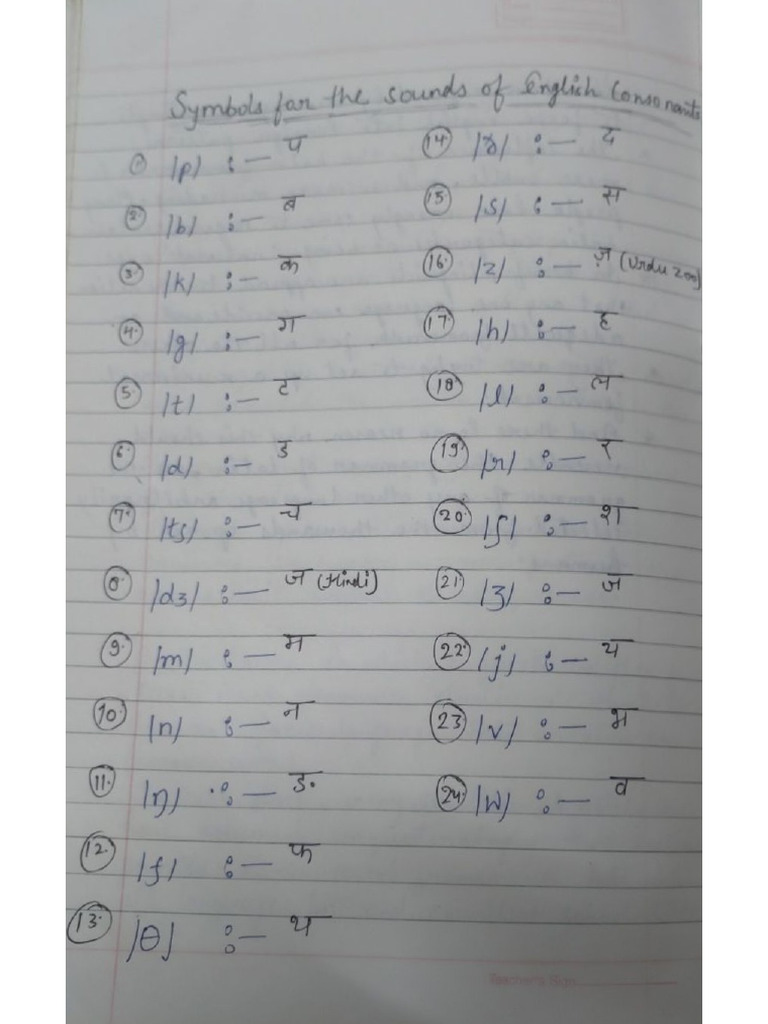 Symbols for the sounds of English Consonants
① /p/ :— प
②. /b/ :— ब
③. /k/ :— क
④. /g/ :— ग
⑤. /t/ :— ट
⑥. /d/ :— ड
⑦. /tʃ/ :— च
⑧. /dʒ/ :— ज (Hindi)
⑨. /m/ :— म
⑩. /n/ :— न
⑪. /ŋ/ :— ङ
⑫. /f/ :— फ
⑬. /θ/ :— थ
⑭. /ð/ :— द
⑮. /s/ :— स
⑯. /z/ :— ज़ (Urdu zon)
⑰. /h/ :— ह
⑱. /l/ :— ल
⑲. /r/ :— र
⑳. /ʃ/ :— श
㉑. /ʒ/ :— ज
㉒. /j/ :— य
㉓. /v/ :— भ
㉔. /w/ :— व
Teacher's Sign